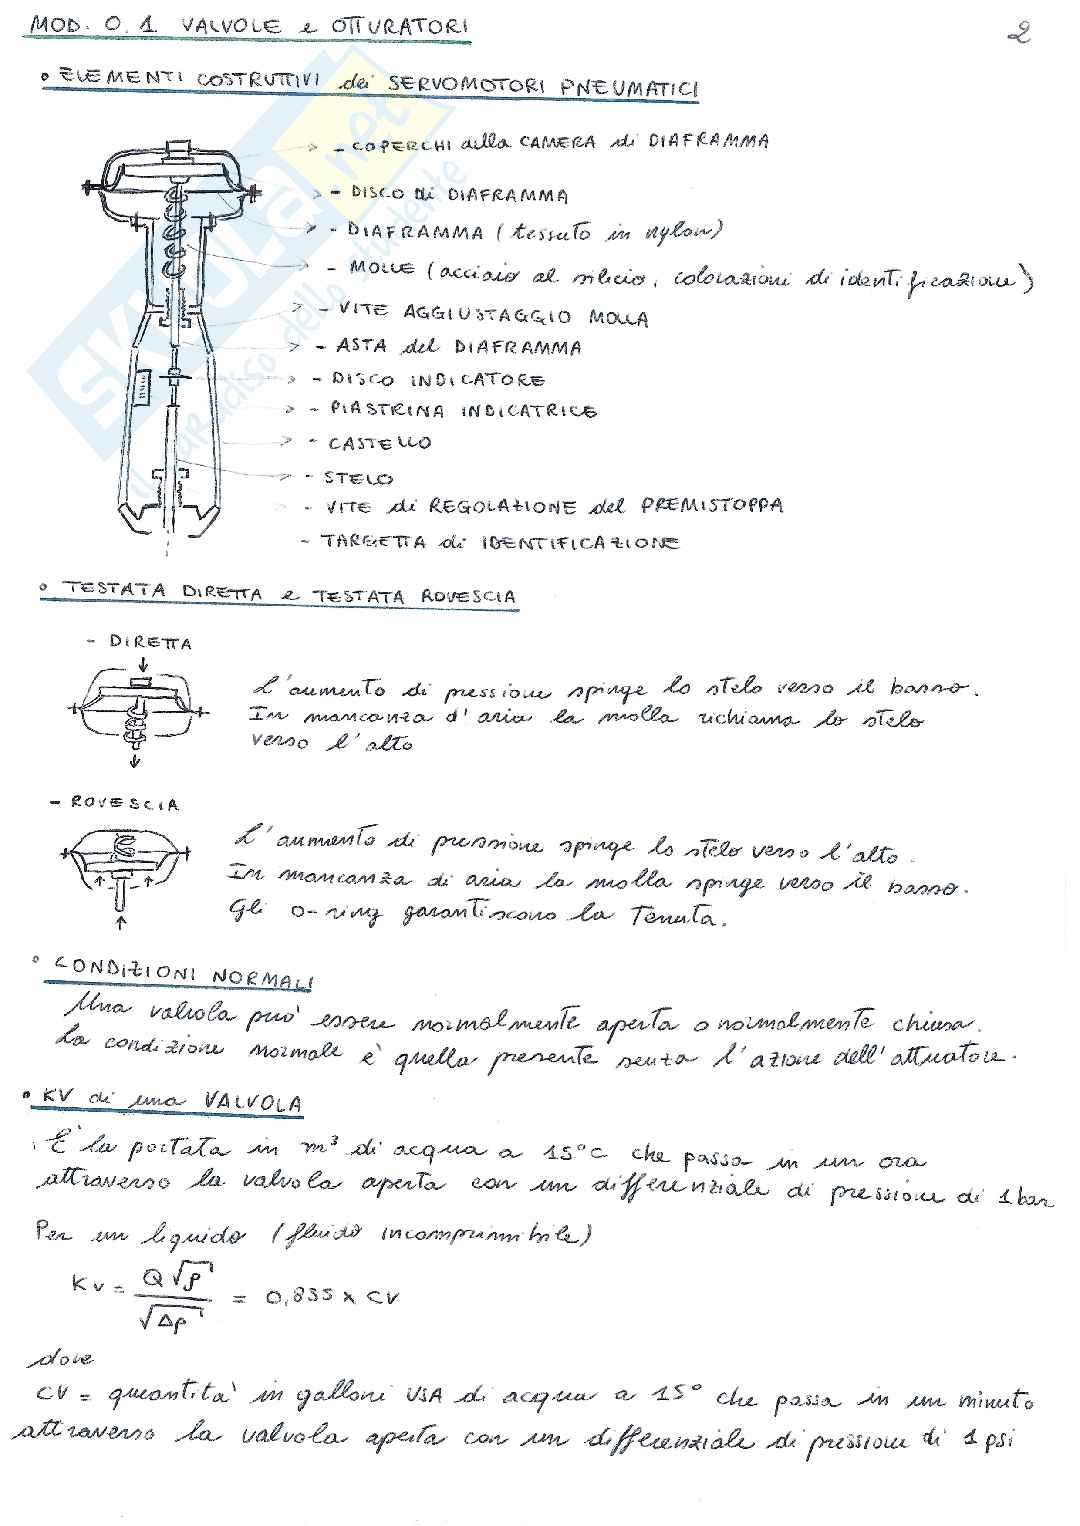 MOD. 0.1 VALVOLE e OTTURATORI
2
• ELEMENTI COSTRUTTIVI dei SERVOMOTORI PNEUMATICI
- COPERCHI della CAMERA di DIAFRAMMA
- DISCO di DIAFRAMMA
- DIAFRAMMA (tessuto in nylon)
- MOLLE (acciaio al silicio, colorazioni di identificazione)
- VITE AGGIUSTAGGIO MOLLA
- ASTA del DIAFRAMMA
- DISCO INDICATORE
- PIASTRINA INDICATRICE
- CASTELLO
- STELO
- VITE di REGOLAZIONE del PREMISTOPPA
- TARGETTA di IDENTIFICAZIONE
SKUOLA.net
il paradiso dello studente
• TESTATA DIRETTA e TESTATA ROVESCIA
- DIRETTA
L'aumento di pressione spinge lo stelo verso il basso.
In mancanza d'aria la molla richiama lo stelo
verso l'alto
- ROVESCIA
L'aumento di pressione spinge lo stelo verso l'alto.
In mancanza di aria la molla spinge verso il basso.
Gli o-ring garantiscono la tenuta.
• CONDIZIONI NORMALI
Una valvola può essere normalmente aperta o normalmente chiusa.
La condizione normale è quella presente senza l'azione dell'attuatore.
• KV di una VALVOLA
È la portata in m³ di acqua a 15°C che passa in un ora
attraverso la valvola aperta con un differenziale di pressione di 1 bar
Per un liquido (fluido incomprimibile)
Kv = Q√ρ / √Δp = 0,855 x CV
dove
CV = quantità in galloni USA di acqua a 15° che passa in un minuto
attraverso la valvola aperta con un differenziale di pressione di 1 psi